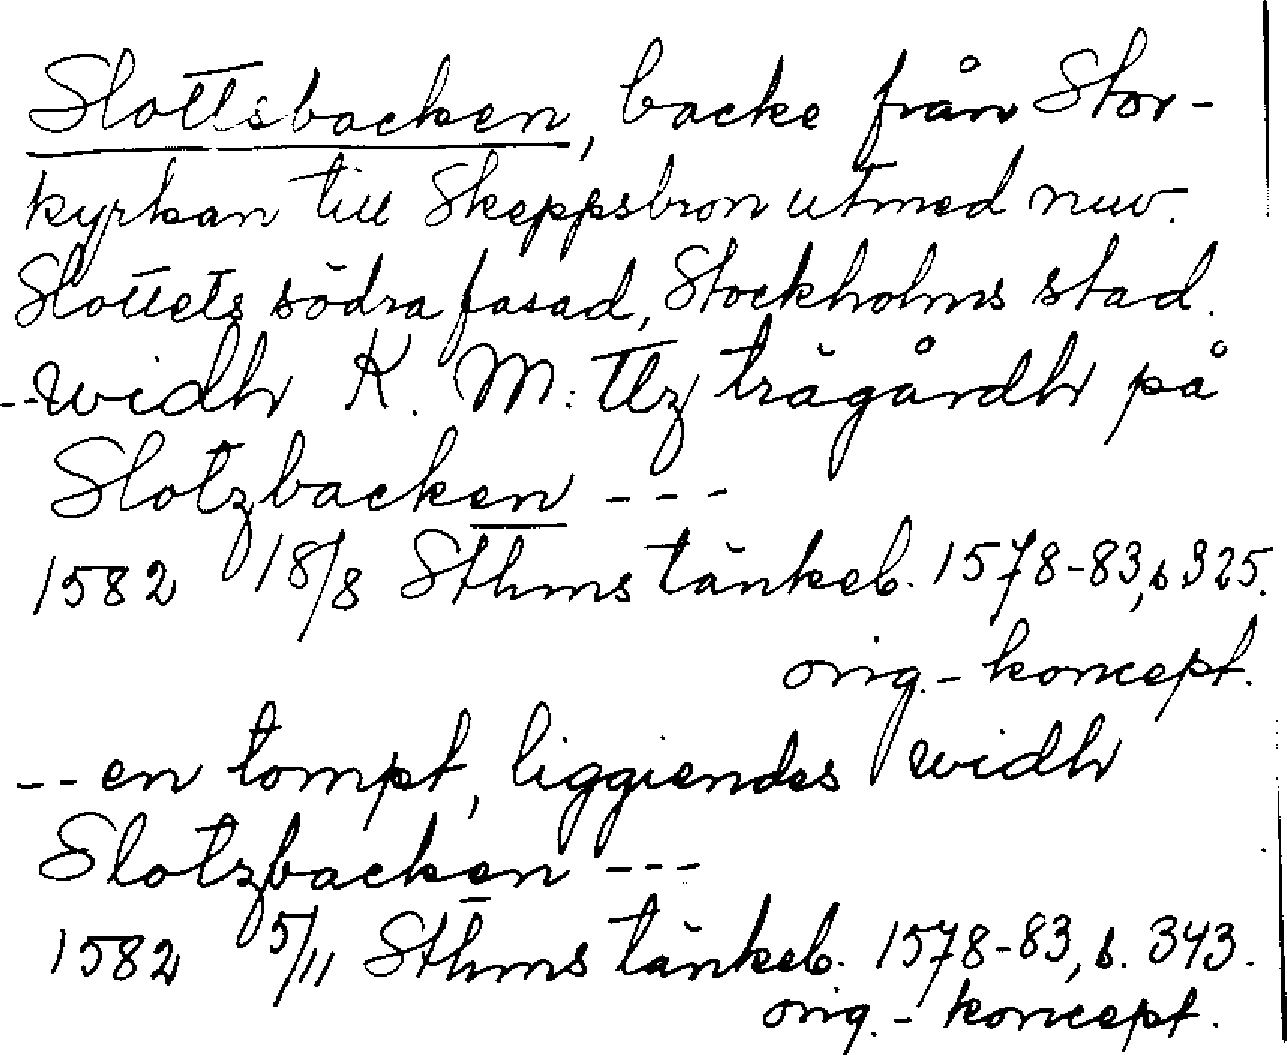 Slottsbacken, backe från Stor-
kyrkan till Skeppsbron utmed nuv.
Slottets södra fasad, Stockholms stad.
--widh K. M:tz trägårdh på
Slotzbacken ---
1582 18/8 Sthms tänkeb. 1578-83, s 325.
orig.-koncept.
-- en tompt, liggiendes widh
Slotzbacken ---
1582 5/11 Sthms tänkeb. 1578-83, s. 343.
orig.-koncept.